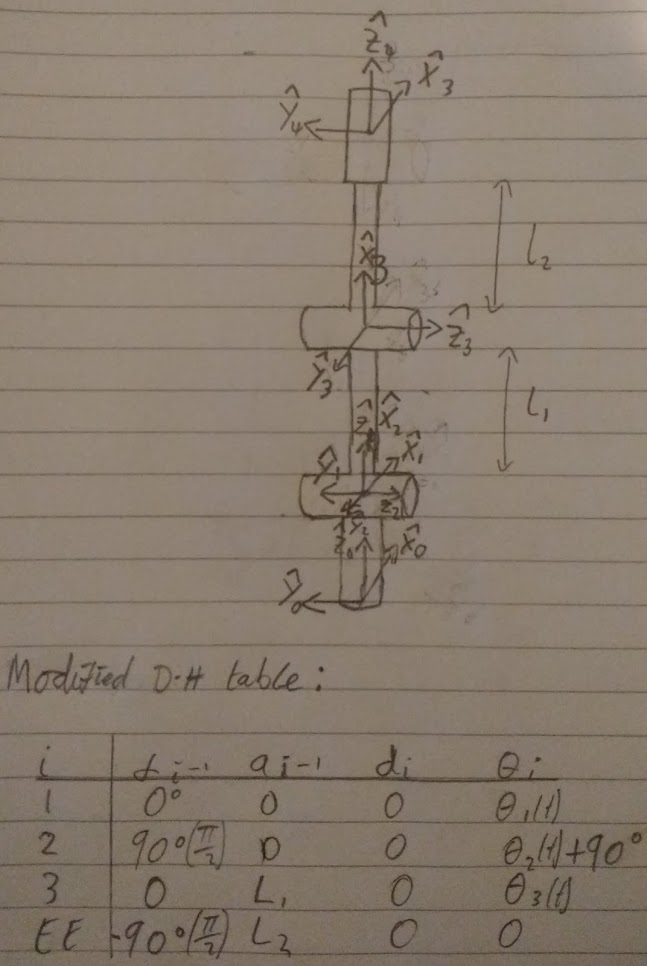 Ẑ4
X̂3
Ŷ4
L2
X̂3
Ẑ3
Ŷ3
L1
Ẑ1 X̂2
Ŷ1 X̂1
Ẑ2
Ŷ2
Ẑ0 X̂0
Ŷ0
Modified D-H table:
i αi-1 ai-1 di θi
1 0° 0 0 θ1(t)
2 90°(π/2) 0 0 θ2(t)+90°
3 0 L1 0 θ3(t)
EE -90°(π/2) L2 0 0